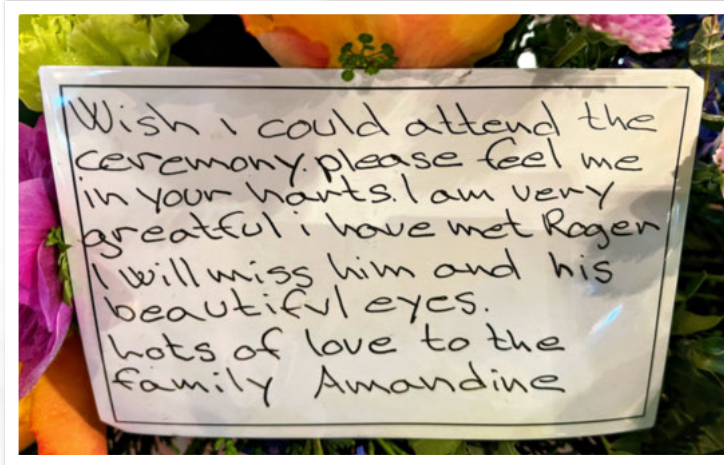 Wish i could attend the
ceremony. please feel me
in your harts. I am very
greatful i have met Roger
I will miss him and his
beautiful eyes.
Lots of love to the
family Amandine